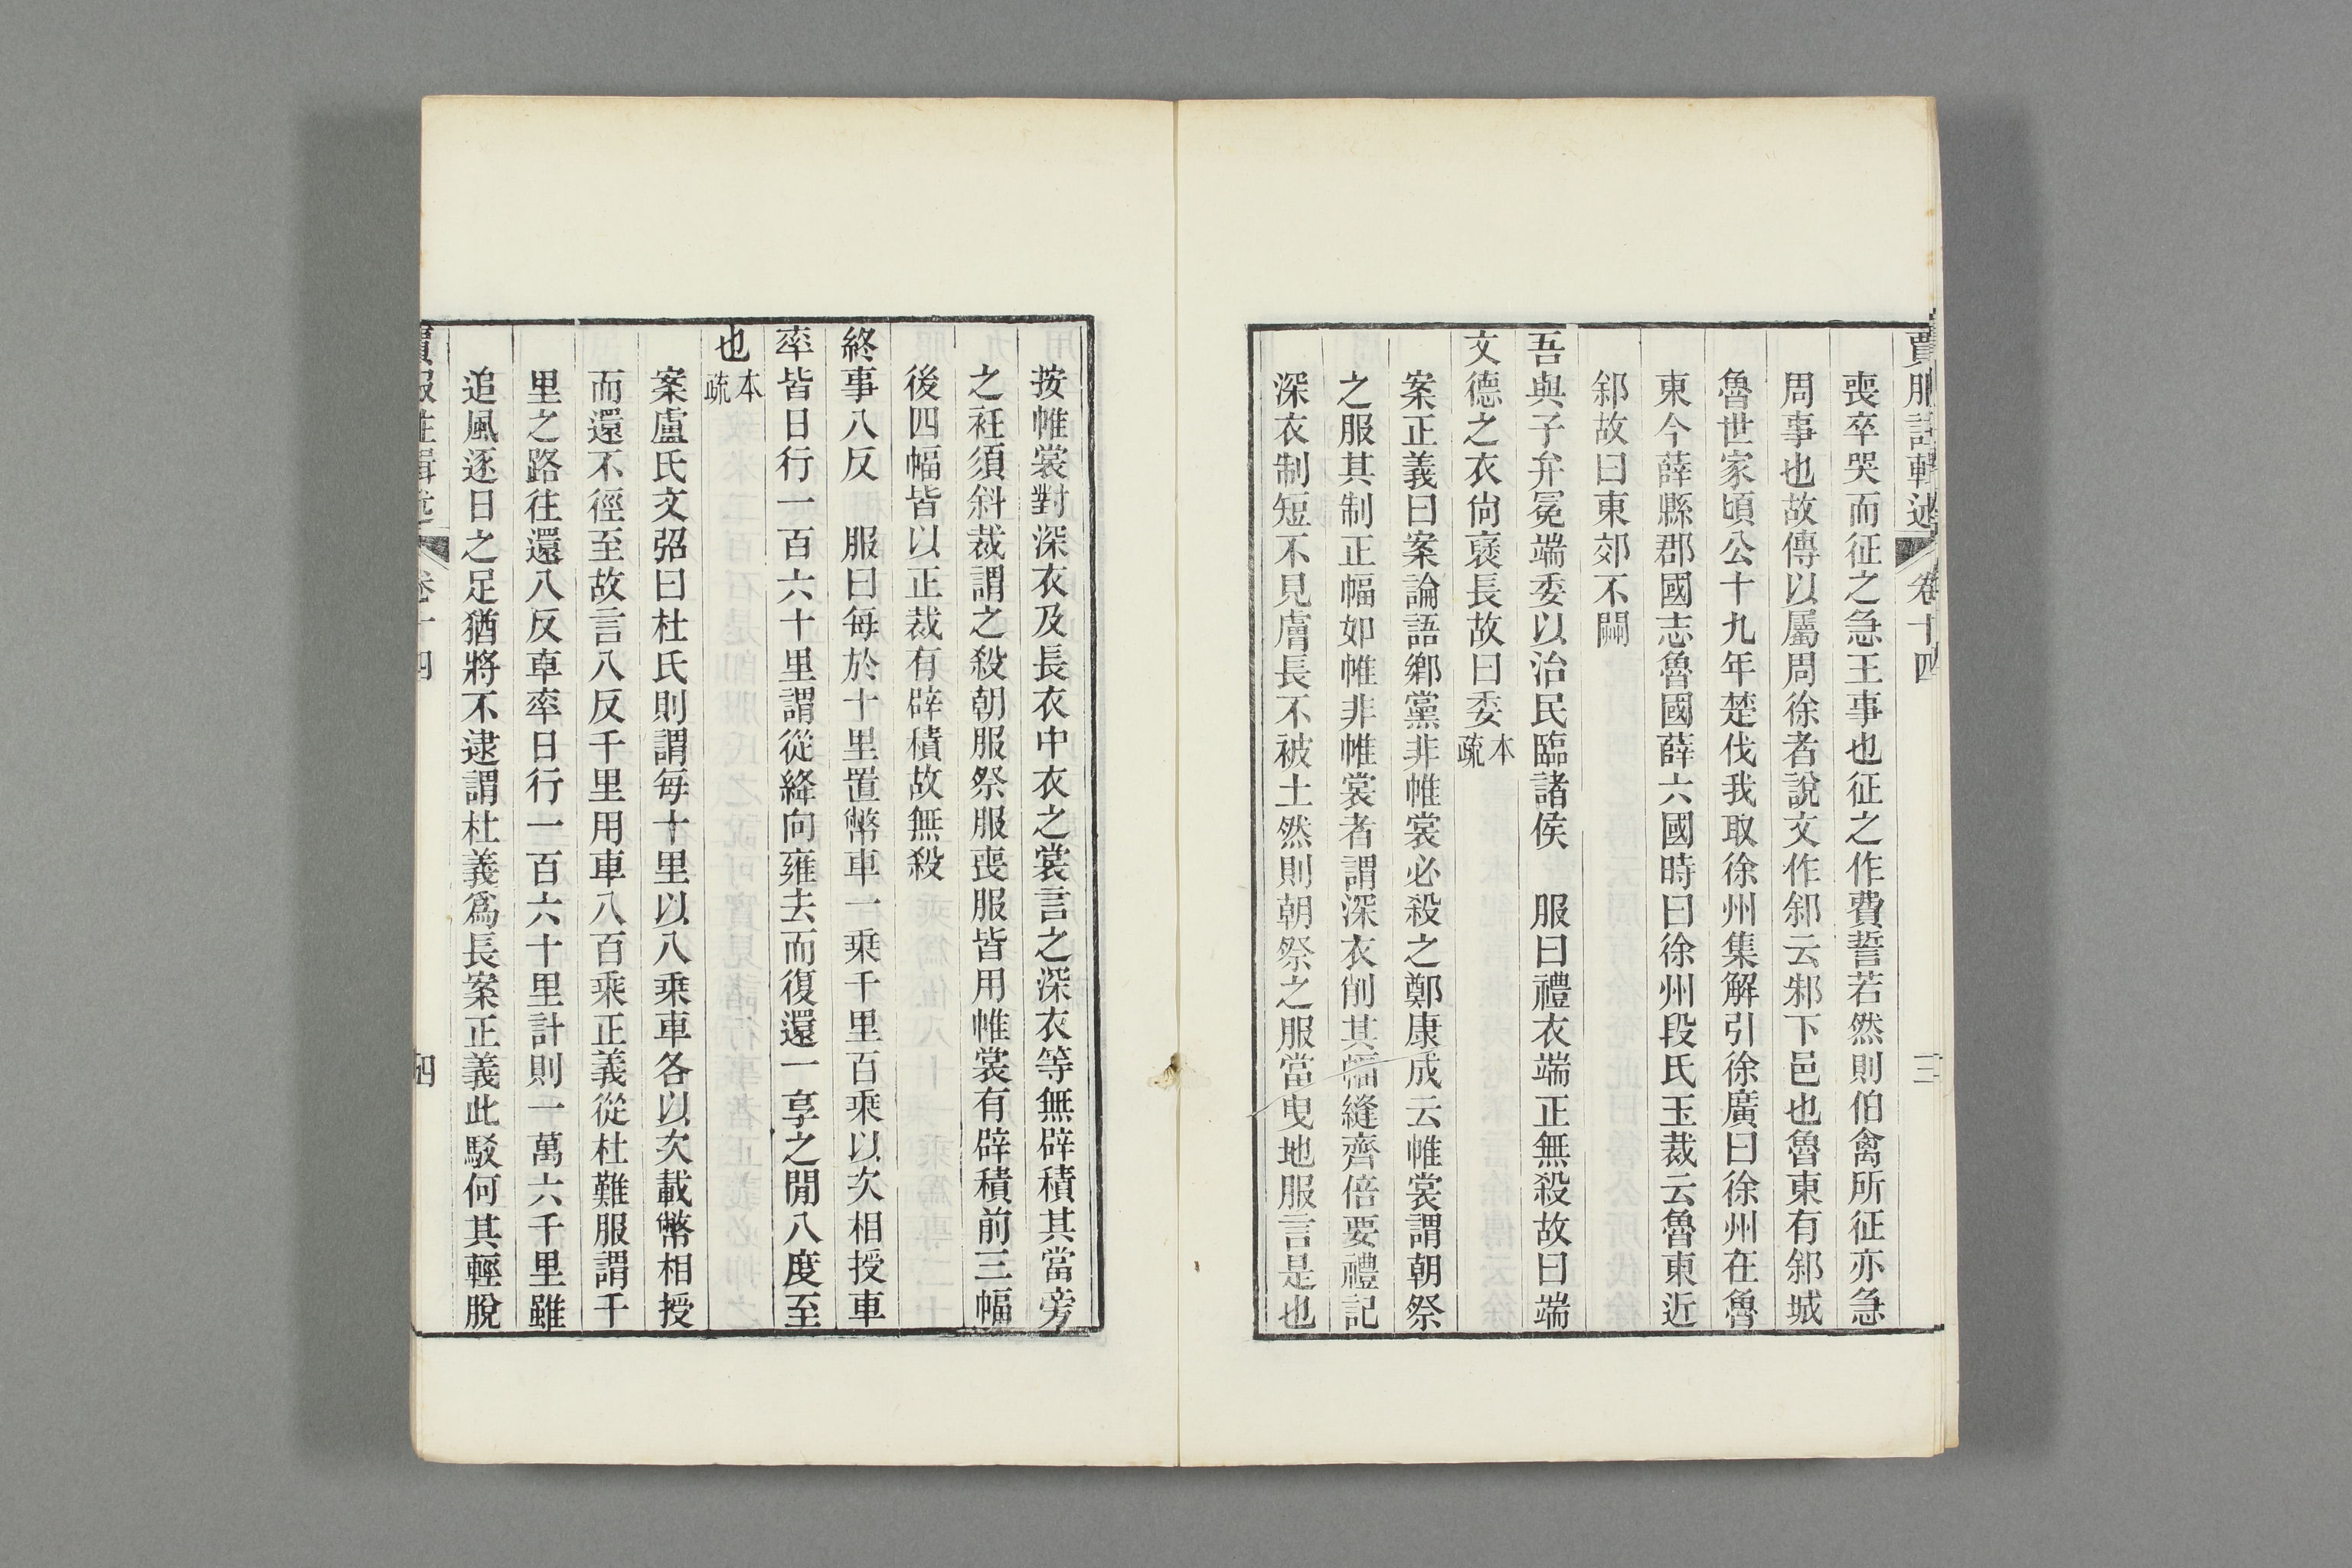 賈服注輯述 卷十四 三
喪卒哭而征之急王事也征之作費誓若然則伯禽所征亦急
周事也故傳以屬周徐者說文作䣄云邾下邑也魯東有䣄城
魯世家頃公十九年楚伐我取徐州集解引徐廣曰徐州在魯
東今薛縣郡國志魯國薛六國時曰徐州段氏玉裁云魯東近
䣄故曰東郊不闢
吾與子弁冕端委以治民臨諸侯　服曰禮衣端正無殺故曰端
文德之衣尙襃長故曰委本疏
案正義曰案論語鄕黨非帷裳必殺之鄭康成云帷裳謂朝祭
之服其制正幅如帷非帷裳者謂深衣削其幅縫齊倍要禮記
深衣制短不見膚長不被土然則朝祭之服當曳地服言是也
按帷裳對深衣及長衣中衣之裳言之深衣等無辟積其當旁
之衽須斜裁謂之殺朝服祭服喪服皆用帷裳有辟積前三幅
後四幅皆以正裁有辟積故無殺
終事八反　服曰每於十里置幣車一乘千里百乘以次相授車
率皆日行一百六十里謂從絳向雍去而復還一享之閒八度至
也本疏
案盧氏文弨曰杜氏則謂每十里以八乘車各以次載幣相授
而還不徑至故言八反千里用車八百乘正義從杜難服謂千
里之路往還八反車率日行一百六十里計則一萬六千里雖
追風逐日之足猶將不逮謂杜義爲長案正義此駁何其輕脫
賈服注輯述 卷十四 四